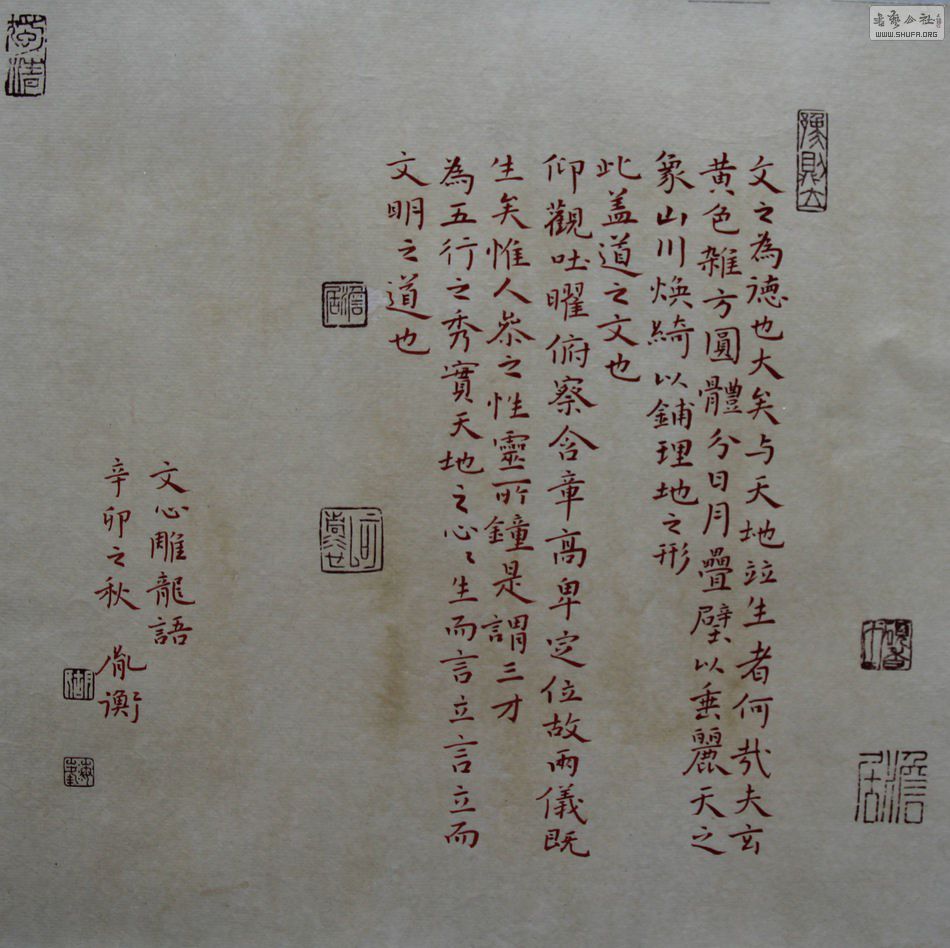 書藝公社
WWW.SHUFA.ORG
豫則立
文之為德也大矣与天地竝生者何哉夫玄
黄色雜方圓體分日月疊壁以垂麗天之
象山川煥綺以鋪理地之形
此盖道之文也
仰觀吐曜俯察含章高卑定位故兩儀既
生矣惟人叅之性靈所鐘是謂三才
為五行之秀實天地之心〻生而言立言立而
文明之道也
澹居
文心雕龍語
辛卯之秋 胤
澹居